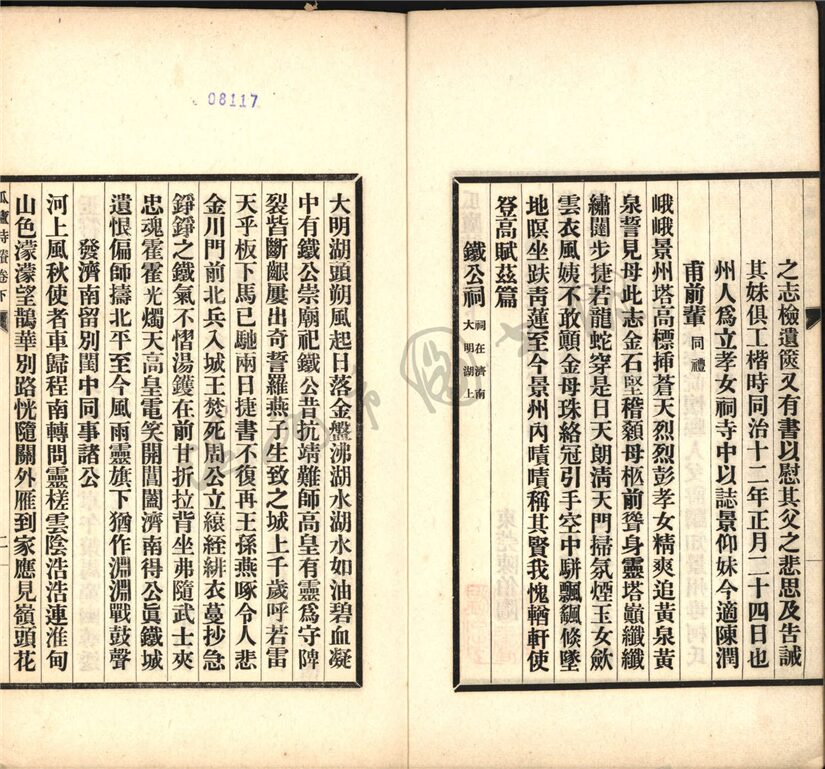 之志檢遺篋又有書以慰其父之悲思及告誡
其妹俱工楷時同治十二年正月二十四日也
州人爲立孝女祠寺中以誌景仰妹今適陳潤
甫前輩同禮
峨峨景州塔高標揷蒼天烈烈彭孝女精爽追黃泉黃
泉誓見母此志金石堅稽顙母柩前聳身靈塔巔纖纖
繡闥步捷若龍蛇穿是日天朗淸天門掃氛煙玉女斂
雲衣風姨不敢顚金母珠絡冠引手空中騈飄飄倏墜
地瞑坐趺靑蓮至今景州內嘖嘖稱其賢我愧輶軒使
登高賦茲篇
鐵公祠祠在濟南大明湖上
大明湖頭朔風起日落金盤沸湖水湖水如油碧血凝
中有鐵公崇廟祀鐵公昔抗靖難師高皇有靈爲守陴
裂眥斷齦屢出奇誓羅燕子生致之城上千歲呼若雷
天乎板下馬已馳兩日捷書不復再王孫燕啄令人悲
金川門前北兵入城王焚死周公立縗絰緋衣蔓抄急
錚錚之鐵氣不慴湯鑊在前甘折拉背坐弗隨武士夾
忠魂霍霍光燭天高皇電笑開閶闔濟南得公眞鐵城
遺恨偏師擣北平至今風雨靈旗下猶作淵淵戰鼓聲
發濟南留別闈中同事諸公
河上風秋使者車歸程南轉問靈槎雲陰浩浩連淮甸
山色濛濛望鵲華別路恍隨關外雁到家應見嶺頭花
瓜廬詩賸卷下
二
08117